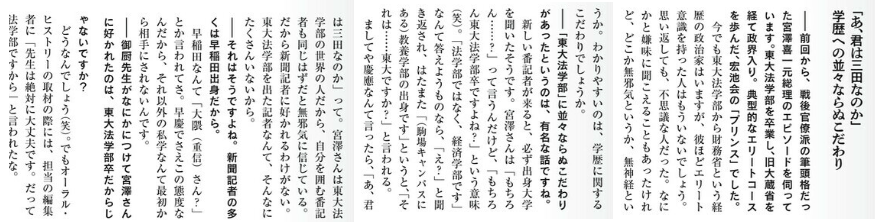 「あ、君は三田なのか」
学歴への並々ならぬこだわり
――前回から、戦後官僚派の筆頭格だっ
た宮澤喜一元総理のエピソードを伺って
います。東大法学部を卒業し、旧大蔵省を
経て政界入り。典型的なエリートコース
を歩んだ、宏池会の「プリンス」でした。
今でも東大法学部から財務省という経
歴の政治家はいますが、彼ほどエリート
意識を持った人はもういないでしょう。
思い返しても、不思議な人だった。なに
かと嫌味に聞こえることもあったけれ
ど、どこか無邪気というか、無神経とい
うか。わかりやすいのは、学歴に関する
こだわりでしょうか。
――「東大法学部」に並々ならぬこだわり
があったというのは、有名な話ですね。
新しい番記者が来ると、必ず出身大学
を聞いたそうです。宮澤さんは「もちろ
ん東大法学部卒ですよね？」という意味
で、「もちろ……」って言うんだけど、「もちろ
（笑）。「法学部ではなく、経済学部です」
なんて答えようものなら、「え？」と聞
き返され、はたまた「（駒場キャンパスに
ある）教養学部の出身です」というと、「そ
れは……東大ですか？」と言われる。
ましてや慶應なんて言ったら、「あ、君
は三田なのか」って。宮澤さんは東大法
学部の世界の人だから、自分を囲む番記
者も同じはずだと無邪気に信じている。
だから新聞記者に好かれるわけがない。
東大法学部を出た記者なんて、そんなに
たくさんいないから。
――それはそうですよね。新聞記者の多
くは早稲田出身だから。
早稲田なんて「大隈（重信）さん？」
とか言われてさ。早慶でさえこの態度な
んだから、それ以外の私学なんて最初か
ら相手にされないんです。
――御厨先生がなにかにつけて宮澤さん
に好かれたのは、東大法学部卒だからじ
ゃないですか？
どうなんでしょう（笑）。でもオーラル・
ヒストリーの取材の際には、担当の編集
者に「先生は絶対に大丈夫です。だって
法学部ですから」と言われたな。